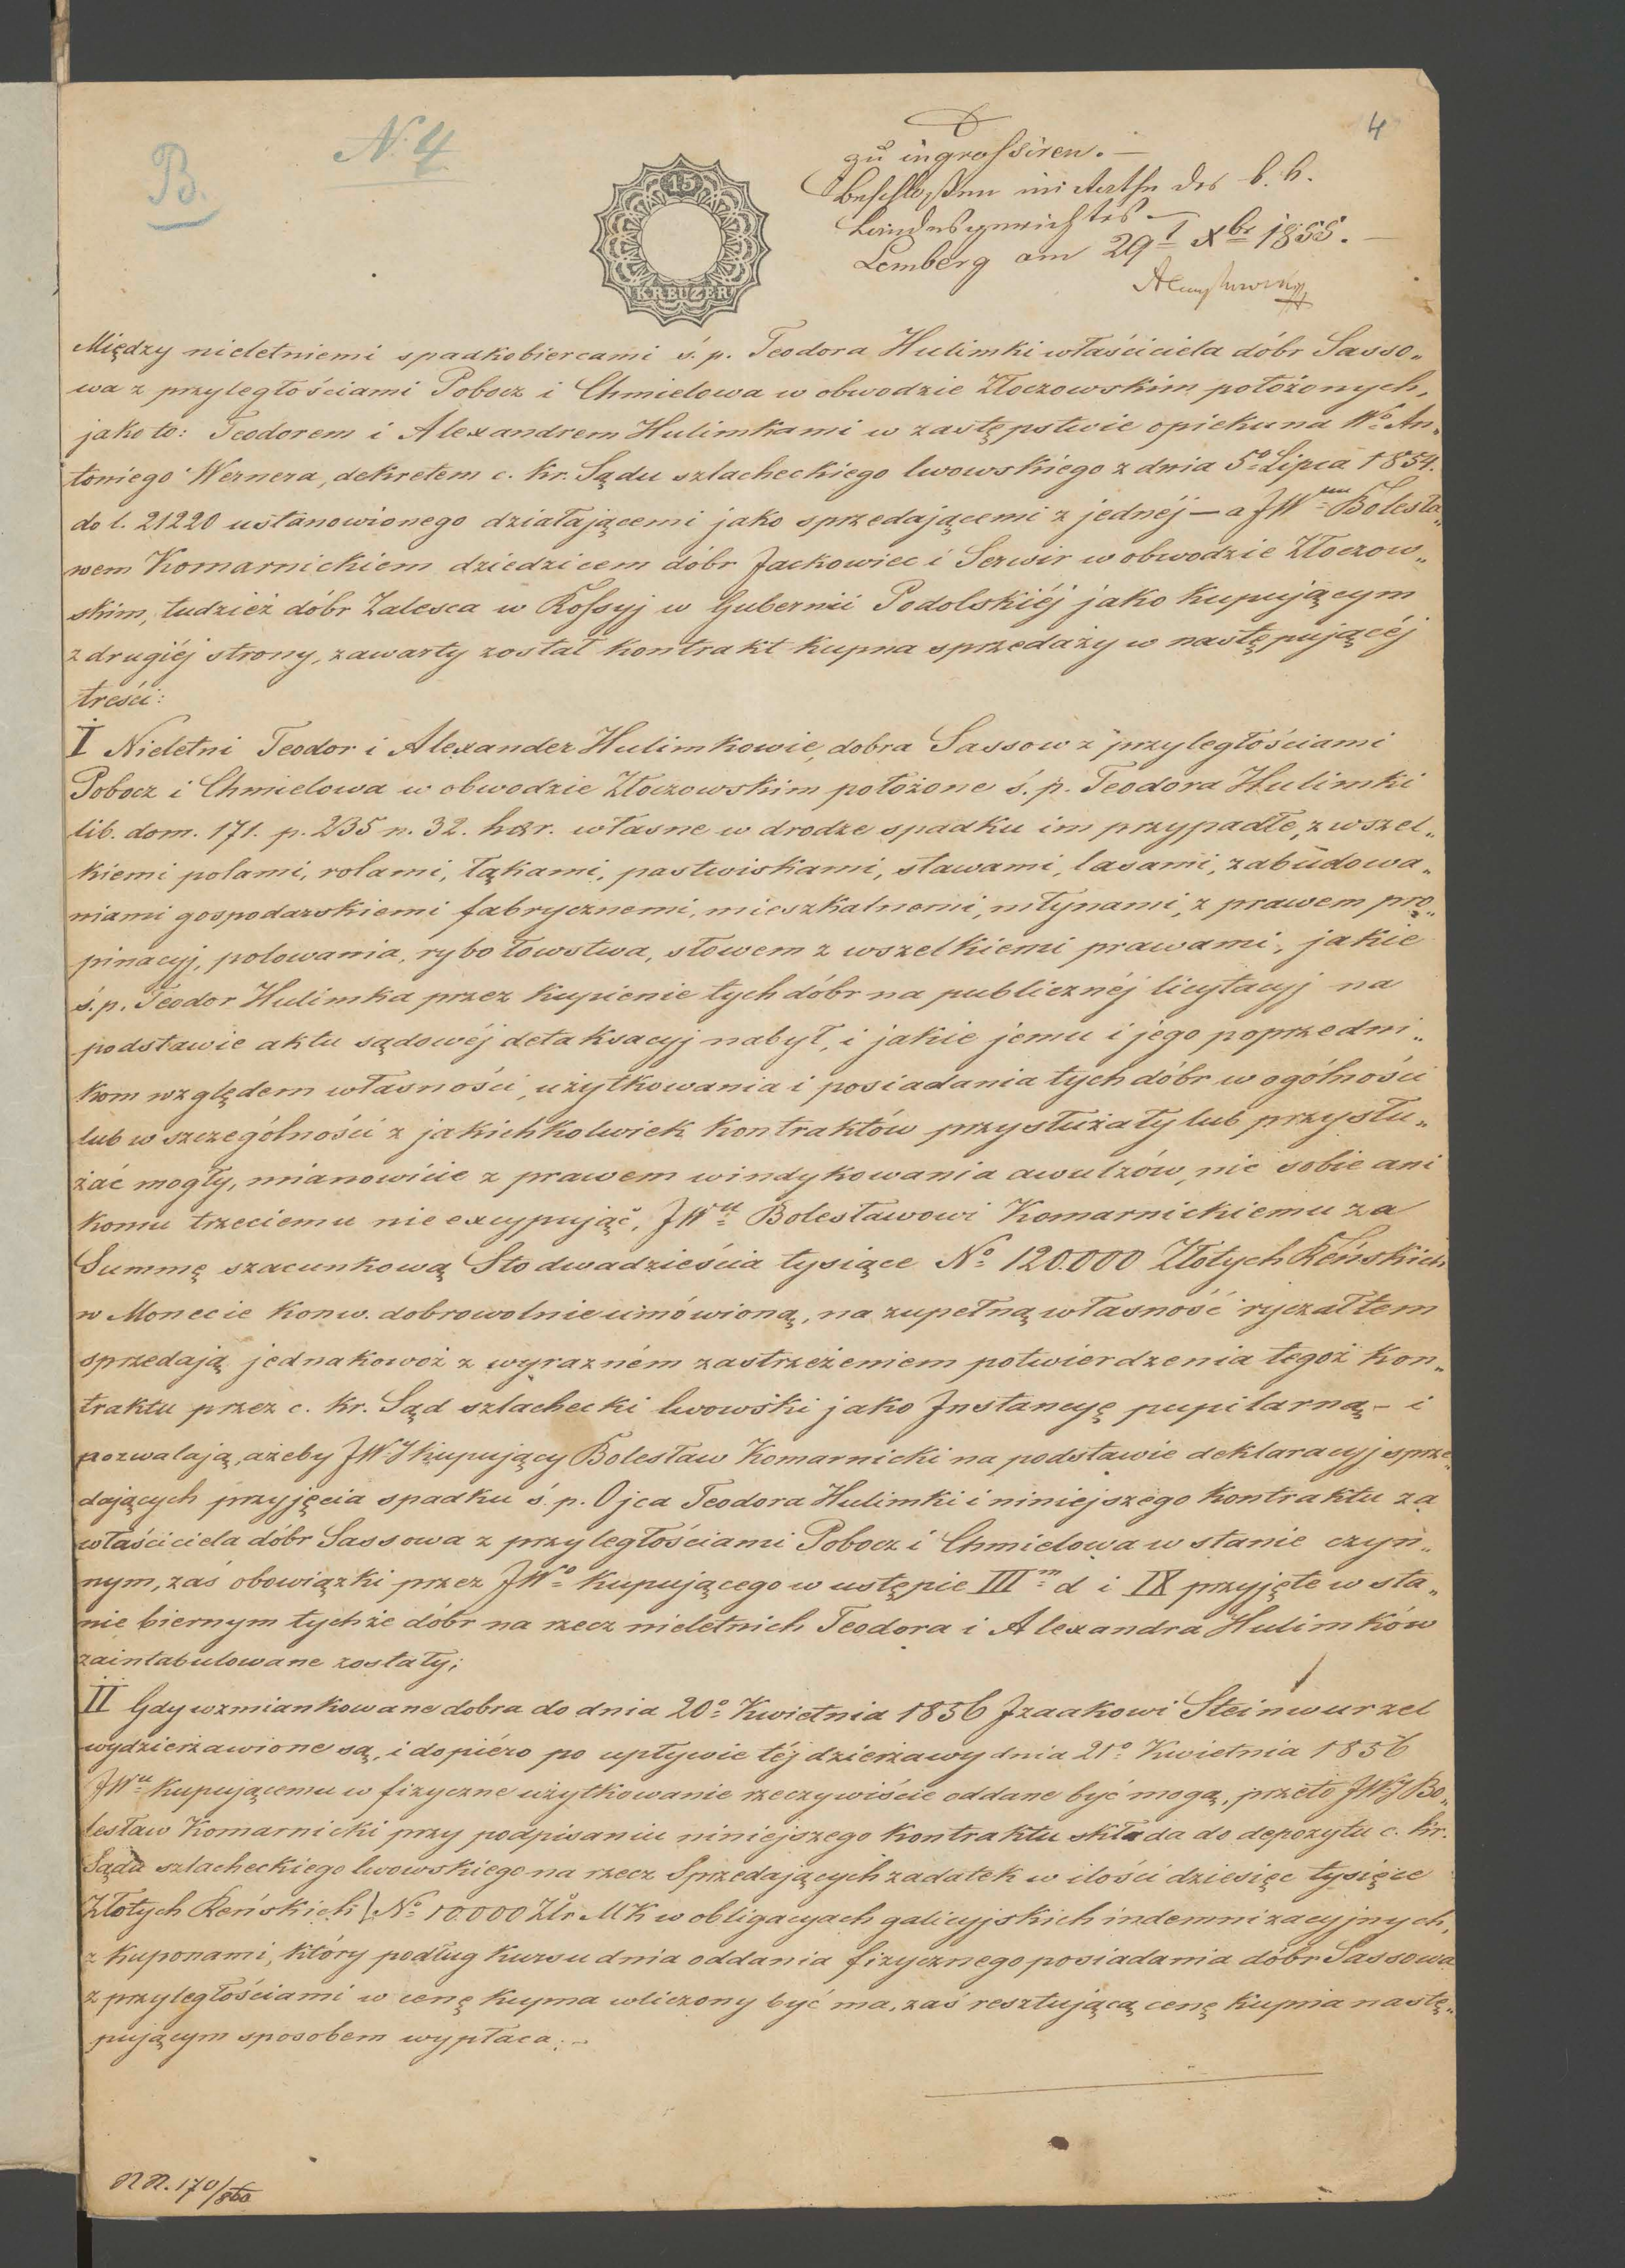 B.
N. 4
4
15
KREUZER
zu ingrossiren. —
Beschloßen im Rathe des k. k.
Landesgerichtes —
Lemberg am 29t Xbr 1855. —
Między nieletniemi spadkobiercami ś. p. Teodora Hulimki właściciela dóbr Sasso„
wa z przyległościami Pobocz i Chmielowa w obwodzie Złoczowskim położonych,
jako to: Teodorem i Alexandrem Hulimkami w zastępstwie opiekuna Wo An„
toniego Wernera, dekretem c. kr. Sądu szlacheckiego lwowskiego z dnia 5o Lipca 1854.
do l. 21220 ustanowionego działającemi jako sprzedającemi z jednéj — a JWem Bolesła„
wem Komarnickiem dziedzicem dóbr Jackowiec i Serwir w obwodzie Złoczow„
skim, tudzież dóbr Zalesca w Rossyj w Gubernii Podolskiéj jako kupującym
z drugiéj strony, zawarty został kontrakt kupna sprzedaży w następującéj
treści:
I Nieletni Teodor i Alexander Hulimkowie, dobra Sassow z przyległościami
Pobocz i Chmielowa w obwodzie Złoczowskim położone ś. p. Teodora Hulimki
lib. dom. 171. p. 235 n. 32. hær. własne w drodze spadku im przypadłe, z wszel„
kiemi polami, rolami, łąkami, pastwiskami, stawami, lasami, zabudowa„
niami gospodarskiemi fabrycznemi, mieszkalnemi, młynami, z prawem pro„
pinacyj, polowania, rybołowstwa, słowem z wszelkiemi prawami, jakie
ś. p. Teodor Hulimka przez kupienie tych dóbr na publicznéj licytacyj na
podstawie aktu sądowéj detaksacyj nabył, i jakie jemu i jego poprzedni„
kom względem własności, użytkowania i posiadania tych dóbr w ogólności
lub w szczególności z jakichkolwiek kontraktów przysłużały lub przysłu„
żać mogły, mianowicie z prawem windykowania awulzów, nic sobie ani
komu trzeciemu nie excypując, JWu Bolesławowi Komarnickiemu za
Summę szacunkową Sto dwadzieścia tysiące No 120.000 Złotych Reńskich
w Monecie konw. dobrowolnie umówioną, na zupełną własność ryczałtem
sprzedają jednakowoż z wyraźném zastrzeżeniem potwierdzenia tegoż kon„
traktu przez c. kr. Sąd szlachecki lwowski jako Instancyę pupilarną — i
pozwalają, ażeby JWJ kupujący Bolesław Komarnicki na podstawie deklaracyj sprze„
dających przyjęcia spadku ś. p. Ojca Teodora Hulimki i niniejszego kontraktu za
właściciela dóbr Sassowa z przyległościami Pobocz i Chmielowa w stanie czyn„
nym, zaś obowiązki przez JWo kupującego w ustępie IIIm d i IX przyjęte w sta„
nie biernym tychże dóbr na rzecz nieletnich Teodora i Alexandra Hulimków
zaintabulowane zostały;
II Gdy wzmiankowane dobra do dnia 20o Kwietnia 1856 Izaakowi Steinwurzel
wydzierżawione są, i dopiéro po upływie téj dzierżawy dnia 21o Kwietnia 1856
JWu kupującemu w fizyczne użytkowanie rzeczywiście oddane być mogą, przeto JWJ Bo„
lesław Komarnicki przy podpisaniu niniejszego kontraktu składa do depozytu c. kr.
Sądu szlacheckiego lwowskiego na rzecz Sprzedających zadatek w ilości dziesięc tysięce
Złotych Reńskich) No 10.000 Złr MK w obligacyach galicyjskich indemnizacyjnych,
z kuponami, który podług kursu dnia oddania fizycznego posiadania dóbr Sassowa
z przyległościami w cenę kupna wliczony być ma, zaś resztującą cenę kupna nastę„
pującym sposobem wypłaca: —
NN. 170/860